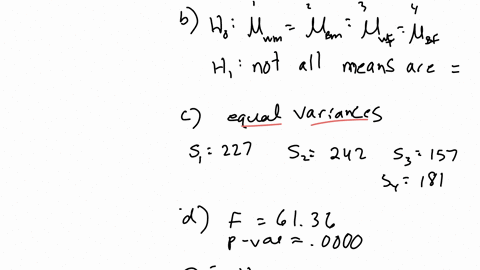 1 2 3 4
b) H₀: μwm = μBm = μwf = μBf
H₁: not all means are =
c) equal variances
S₁ = 227 S₂ = 242 S₃ = 157
S₄ = 181
d) F = 61.36
p-val = .0000